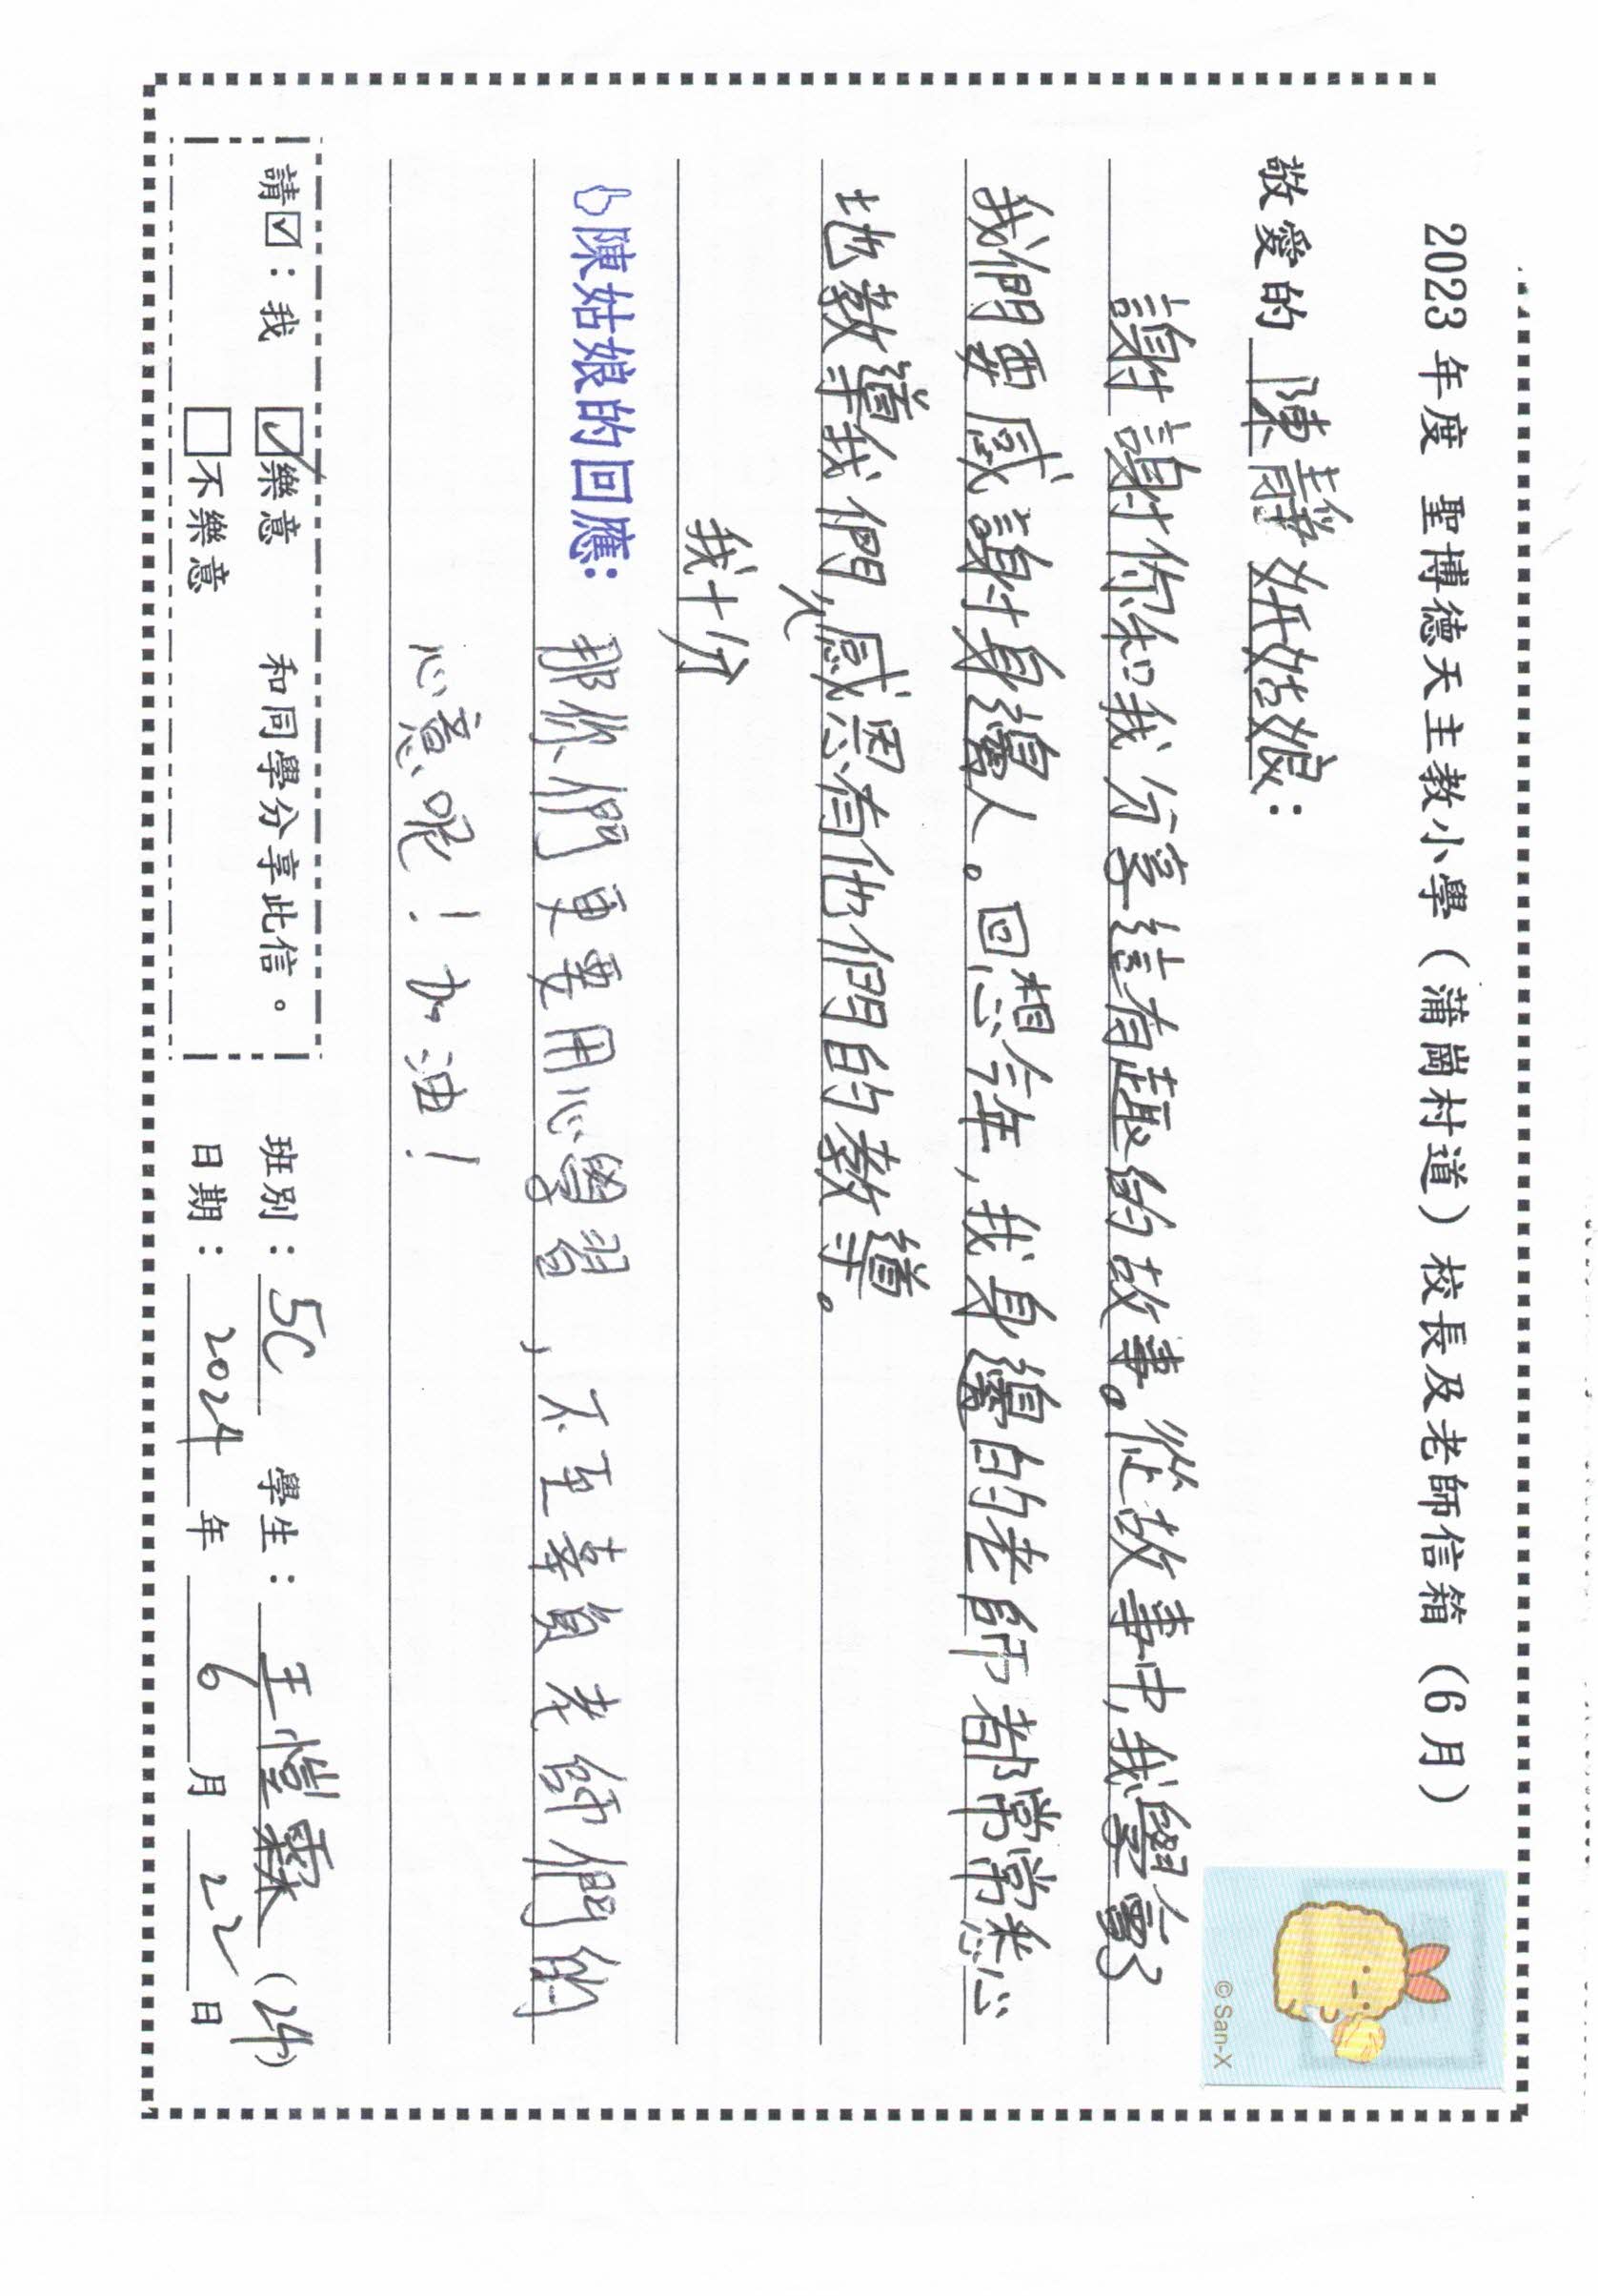 2023 年度 聖博德天主教小學（蒲崗村道）校長及老師信箱（6月）
敬愛的 陳靜妍姑娘：
謝謝你和我分享這有趣的故事。從故事中,我學會了
我們要感謝身邊人。回想今年,我身邊的老師都常常悉心
地教導我們,感恩有他們的教導。
我十分
👍陳姑娘的回應：
那你們更要用心學習，不至辜負老師們的
心意呢！加油！
請☑：我 ☑樂意 和同學分享此信。 班別：5C 學生：王愷霖 (24)
☐不樂意 日期：2024 年 6 月 22 日
© San-X